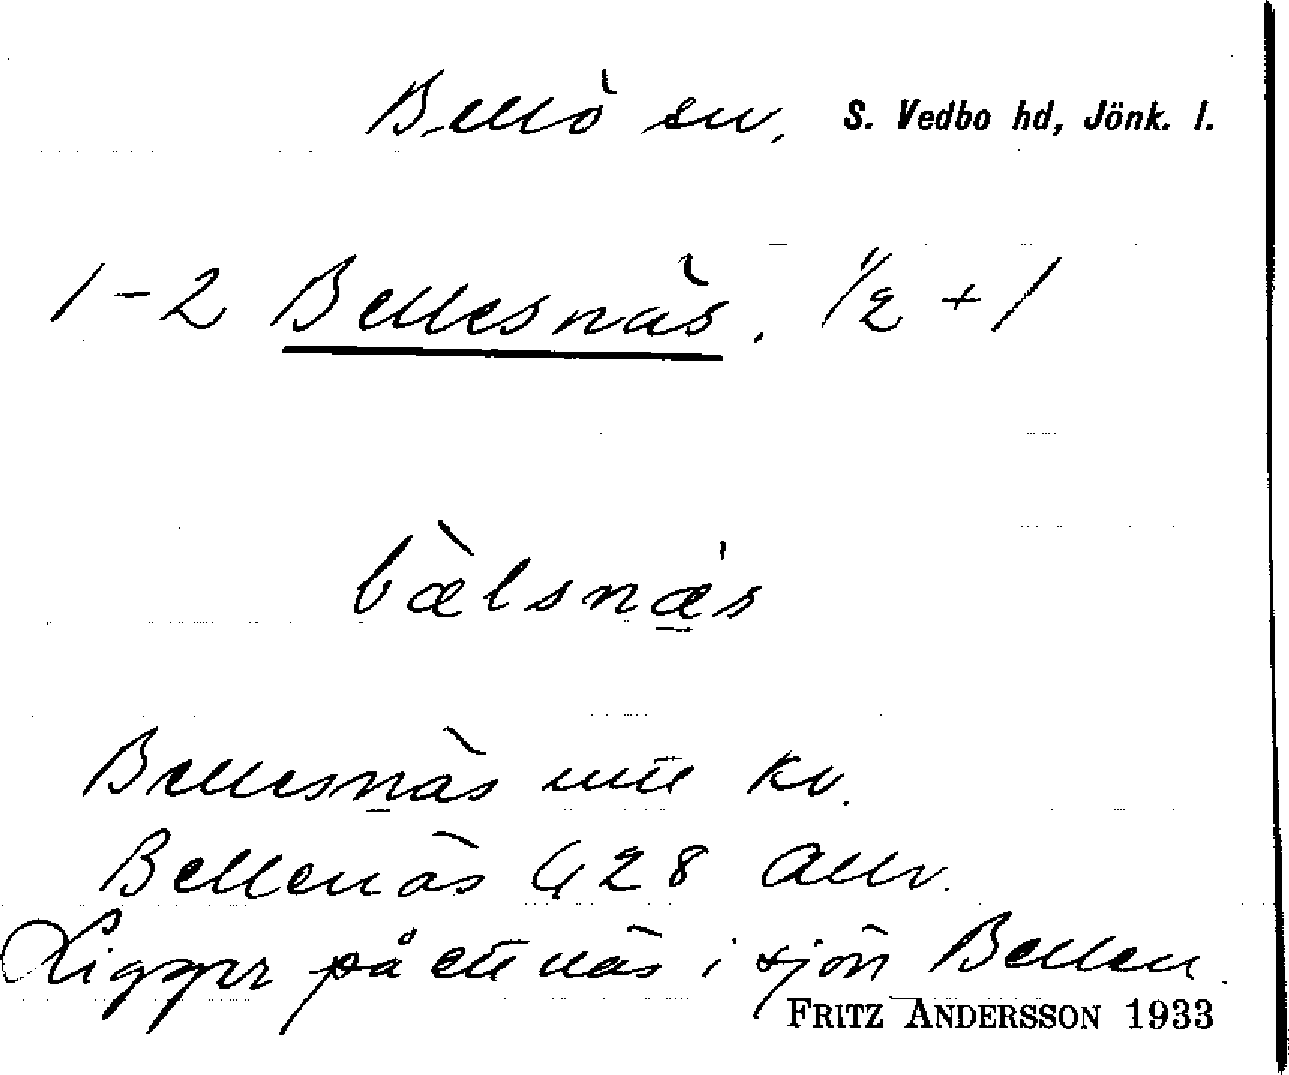 Bellö sn, S. Vedbo hd, Jönk. l.
1-2 Bellesnäs. 1/2 + 1
bælsnæs
Bellesnäs uttt kv.
Bellenäs G 28 Allm.
Ligger på ett näs i sjön Bellen.
FRITZ ANDERSSON 1933